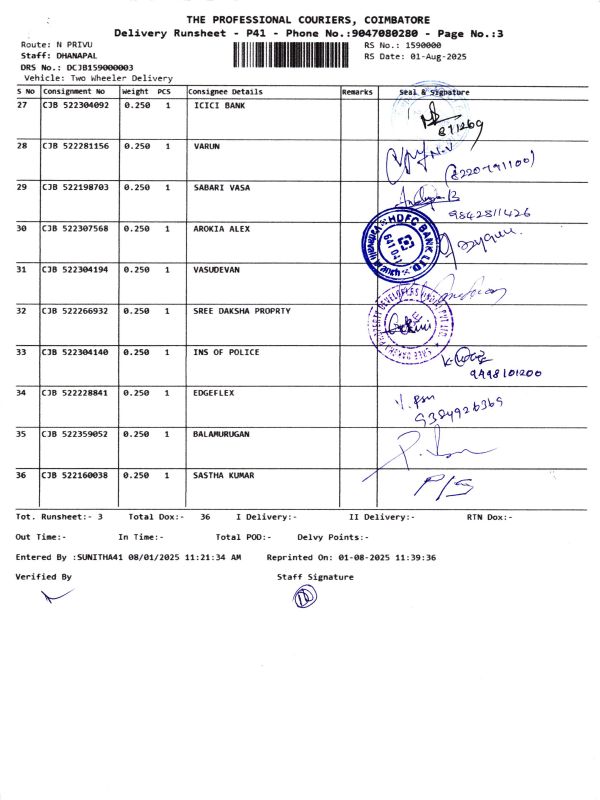 THE PROFESSIONAL COURIERS, COIMBATORE
Delivery Runsheet - P41 - Phone No.:9047080280 - Page No.:3
Route: N PRIVU RS No.: 1590000
Staff: DHANAPAL RS Date: 01-Aug-2025
DRS No.: DCJB159000003
Vehicle: Two Wheeler Delivery
S No Consignment No Weight PCS Consignee Details Remarks Seal & Signature
27 CJB 522304092 0.250 1 ICICI BANK
871269
28 CJB 522281156 0.250 1 VARUN N.V
(8220791100)
29 CJB 522198703 0.250 1 SABARI VASA
9842811426
30 CJB 522307568 0.250 1 AROKIA ALEX
HDFC BANK LTD.
641 041
31 CJB 522304194 0.250 1 VASUDEVAN
32 CJB 522266932 0.250 1 SREE DAKSHA PROPRTY
SREE DAKSHA PROPERTY DEVELOPERS (INDIA) PVT LTD.
33 CJB 522304140 0.250 1 INS OF POLICE
9498101200
34 CJB 522228841 0.250 1 EDGEFLEX
9384926369
35 CJB 522359052 0.250 1 BALAMURUGAN
36 CJB 522160038 0.250 1 SASTHA KUMAR P/S
Tot. Runsheet:- 3 Total Dox:- 36 I Delivery:- II Delivery:- RTN Dox:-
Out Time:- In Time:- Total POD:- Delvy Points:-
Entered By :SUNITHA41 08/01/2025 11:21:34 AM Reprinted On: 01-08-2025 11:39:36
Verified By Staff Signature